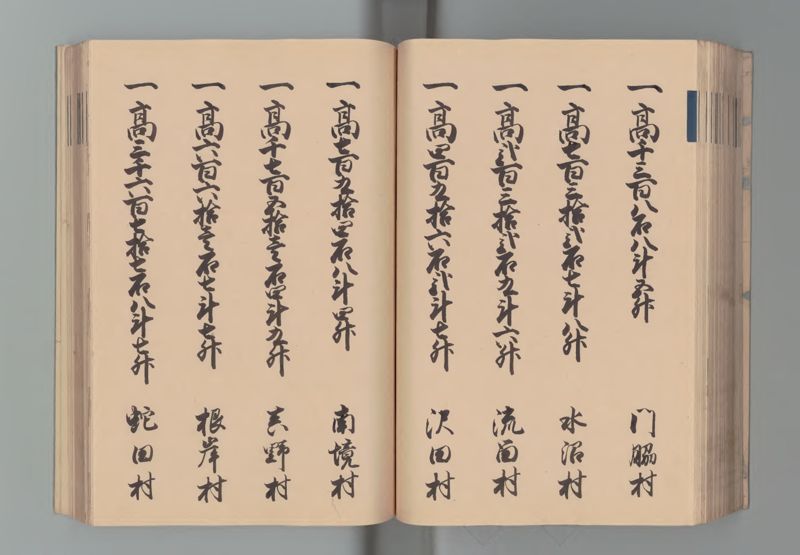 一高千三百八石八斗五升 門脇村
一高七百三拾弐石七斗八升 水沼村
一高弐百三拾弐石九斗六升 流留村
一高四百九拾六石弐斗七升 沢田村
一高七百九拾四石八斗四升 南境村
一高千七百五拾壱石四斗九升 真野村
一高六百六拾壱石七斗七升 根岸村
一高三千六百七拾七石八斗七升 蛇田村